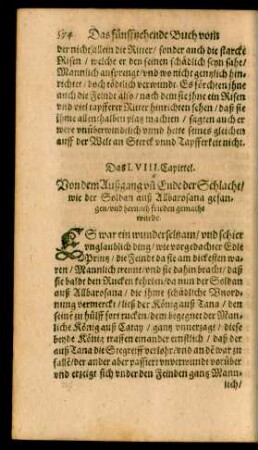 574 Das fünffzehende Buch vom
der nicht allein die Ritter / sonder auch die starcke
Risen / welche er den seinen schädlich seyn sahe /
Mannlich ansprenge / vnd wo nicht gentzlich hin-
richtet / doch tödtlich verwundt. Es förchten ihne
auch die Feinde also / nach dem sie ihne ein Risen
vnd viel tapfferer Ritter hinrichten sehen / daß sie
ihme allenthalben play machten / sagten auch er
were vnüberwindtlich vnnd hette seines gleichen
auff der Welt an Sterck vnnd Tapfferkeit nicht.
Das LVIII. Capittel.
Von dem Außgang vñ Ende der Schlacht /
wie der Soldan auß Albarosana gefan-
gen / vnd hernach frieden gemacht
wurde.
ES war ein wunderseltzam / vnd schier
vnglaublich ding / wie vorgedachter Edle
Printz / die Feinde da sie am dickesten wa-
ren / Mannlich trente / vnd sie dahin bracht / daß
sie balde den Rucken kehrten / da nun der Soldan
auß Albarosana / die ihme schädliche Vnord-
nung vermerckt / ließ der König auß Tana / den
seine zu hülff fort rucken / dem begegnet der Man-
liche König auß Catay / gantz vnuerzagt / diese
beyde König traffen einander ernstlich / daß der
auß Tana die Stegreiff verlohr / vnd an de͂ war zu
falle͂ / der ander aber passiert vnverwundt vorüber
vnd erzeigt sich vnder den Feinden gantz Mann-
lich /